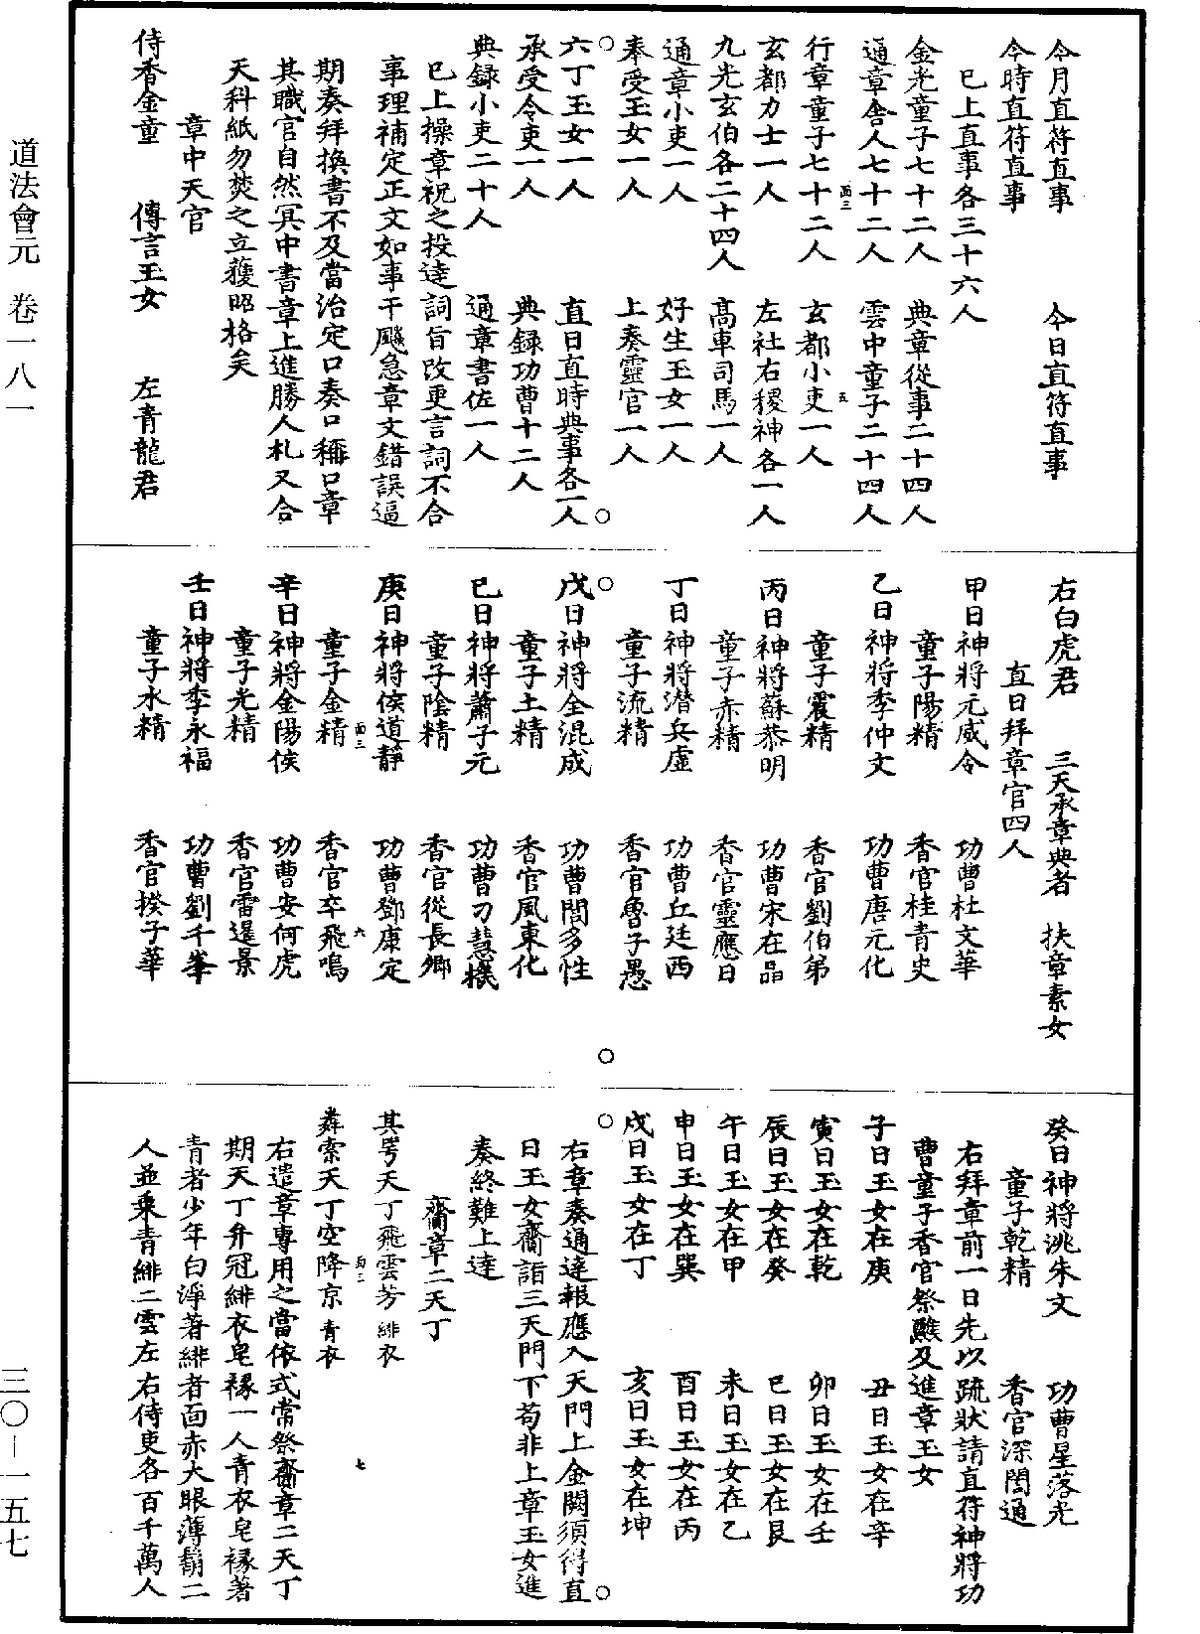 今月直符直事　今日直符直事
今時直符直事
已上直事各三十六人
金光童子七十二人　典章從事二十四人
通章舍人七十二人　雲中童子二十四人
行章童子七十二人　玄都小吏一人
玄都力士一人　左社右稷神各一人
九光玄伯各二十四人　高車司馬一人
通章小吏一人　好生玉女一人
奉受玉女一人　上奏靈官一人
六丁玉女一人　直日直時典事各一人
承受令吏一人　典録功曹十二人
典録小吏二十人　通章書佐一人
已上操章祝之投達詞旨改更言詞不合
事理補定正文如事干飈急章文錯誤逼
期奏拜換書不及當治定口奏口稱口章
其職官自然冥中書章上進勝人札又合
天科紙勿焚之立獲昭格矣
章中天官
侍香金童　傳言玉女　左青龍君
右白虎君　三天承章典者　扶章素女
直日拜章官四人
甲日神將元威令　功曹杜文華
童子陽精　香官桂青史
乙日神將李仲文　功曹唐元化
童子震精　香官劉伯弟
丙日神將蘇恭明　功曹宋在晶
童子赤精　香官靈應日
丁日神將潛兵虛　功曹丘廷西
童子流精　香官魯子愚
戊日神將全混成　功曹閻多性
童子土精　香官風東化
已日神將蕭子元　功曹刀慧機
童子陰精　香官從長鄉
庚日神將侯道靜　功曹鄧康定
童子金精　香官卒飛鳴
辛日神將金陽侯　功曹安何虎
童子光精　香官雷暹景
壬日神將李永福　功曹劉千峯
童子水精　香官揆子華
癸日神將洮朱文　功曹星落光
童子乾精　香官深閏通
右拜章前一日先以疏狀請直符神將功
曹童子香官祭醊及進章玉女
子日玉女在庚　丑日玉女在辛
寅日玉女在乾　卯日玉女在壬
辰日玉女在癸　巳日玉女在艮
午日玉女在甲　未日玉女在乙
申日玉女在巽　酉日玉女在丙
戌日玉女在丁　亥日玉女在坤
右章奏通達報應入天門上金闕須得直
日玉女齎詣三天門下苟非上章玉女進
奏終難上達
齎章二天丁
其㝵天丁飛雲芳 緋衣
粦索天丁空降京 青衣
右遣章專用之當依式常祭齎章二天丁
期天丁弁冠緋衣皂褖一人青衣皂褖著
青者少年白淨著緋者面赤大眼薄鬍二
人並乘青緋二雲左右侍吏各百千萬人
道法會元　卷一八一
三〇—一五七